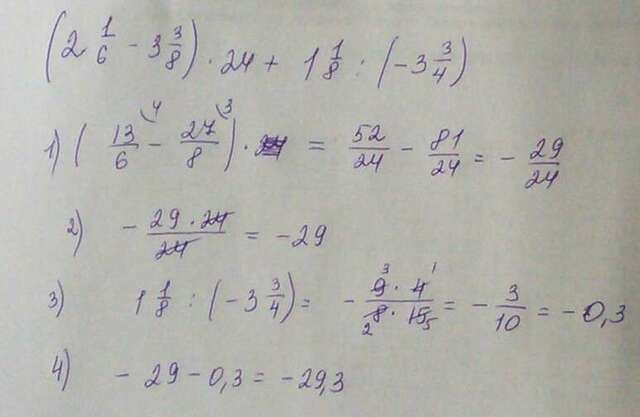 (2 1/6 - 3 3/8) · 24 + 1 1/8 : (-3 3/4)
1) (13/6 ⁽⁴ - 27/8 ⁽³) · = 52/24 - 81/24 = - 29/24
2) - 29 · 24/24 = -29
3) 1 1/8 : (-3 3/4) = - 9³ · 4¹/8₂ · 15₅ = - 3/10 = -0,3
4) - 29 - 0,3 = -29,3